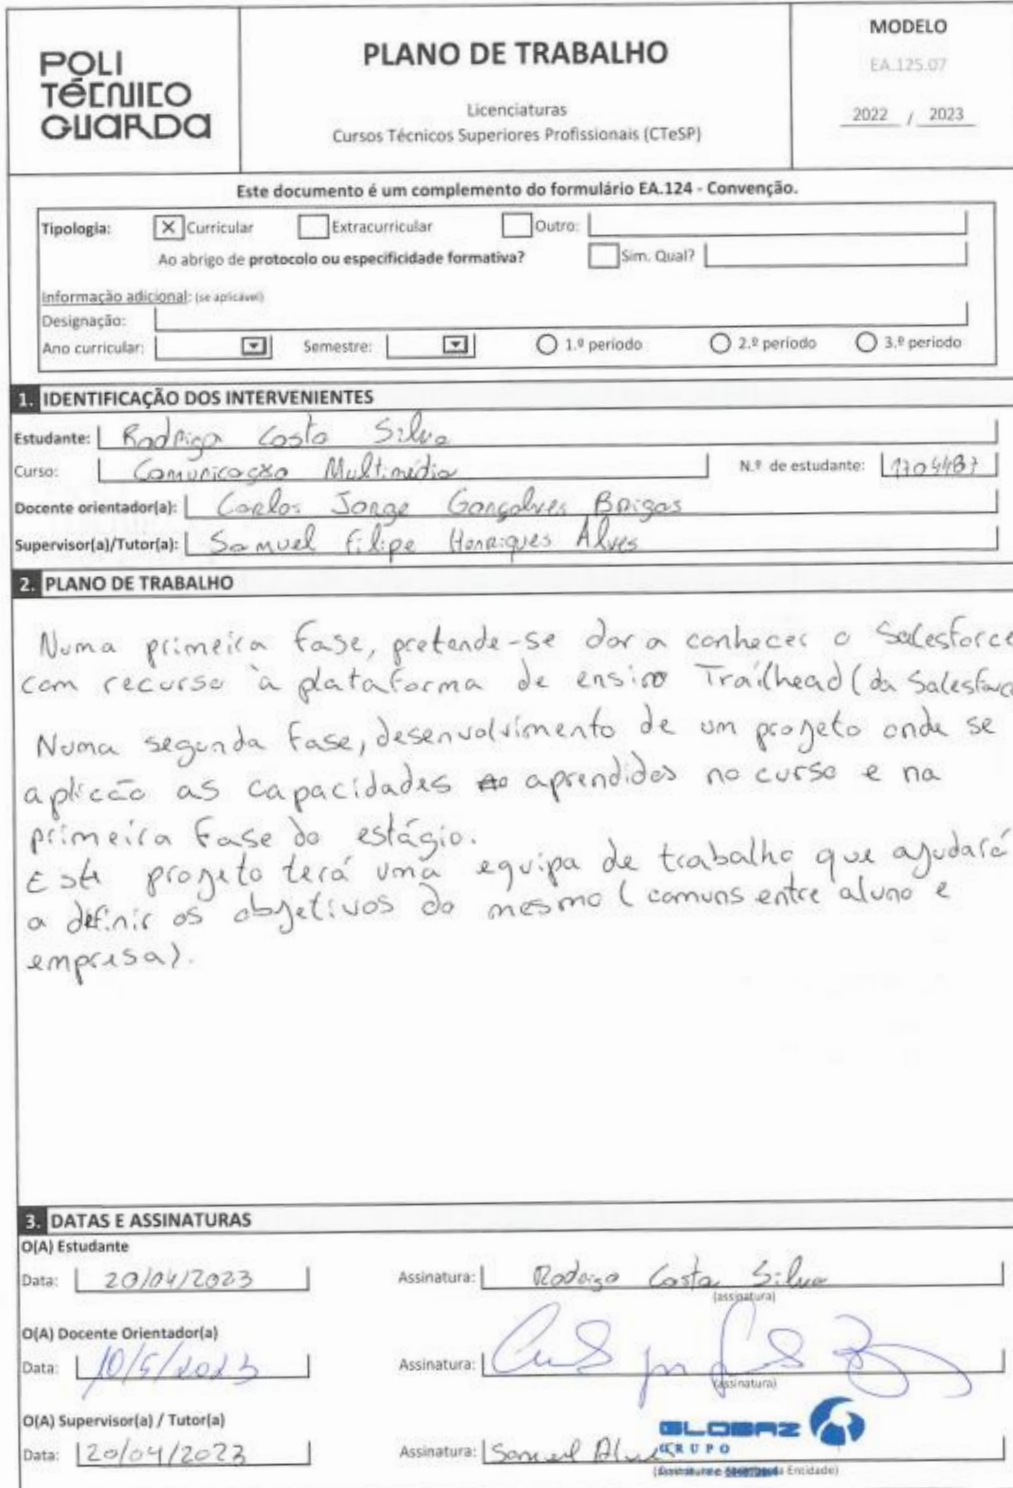 POLI
TÉCNICO
GUARDA
PLANO DE TRABALHO
Licenciaturas
Cursos Técnicos Superiores Profissionais (CTeSP)
MODELO
EA.125.07
2022 / 2023
Este documento é um complemento do formulário EA.124 - Convenção.
Tipologia: X Curricular Extracurricular Outro:
Ao abrigo de protocolo ou especificidade formativa? Sim. Qual?
Informação adicional: (se aplicável)
Designação:
Ano curricular: Semestre: 1.º período 2.º período 3.º período
1. IDENTIFICAÇÃO DOS INTERVENIENTES
Estudante: Rodrigo Costa Silva
Curso: Comunicação Multimédia N.º de estudante: 1704487
Docente orientador(a): Carlos Jorge Gonçalves Brigas
Supervisor(a)/Tutor(a): Samuel Filipe Henriques Alves
2. PLANO DE TRABALHO
Numa primeira fase, pretende-se dar a conhecer o Salesforce
com recurso à plataforma de ensino Trailhead (da Salesforce
Numa segunda fase, desenvolvimento de um projeto onde se
aplicão as capacidades aprendidas no curso e na
primeira fase do estágio.
Este projeto terá uma equipa de trabalho que ajudará
a definir os objetivos do mesmo (comuns entre aluno e
empresa).
3. DATAS E ASSINATURAS
O(A) Estudante
Data: 20/04/2023 Assinatura: Rodrigo Costa Silva
(assinatura)
O(A) Docente Orientador(a)
Data: 10/5/2023 Assinatura:
(assinatura)
O(A) Supervisor(a) / Tutor(a)
GLOBAZ
GRUPO
Data: 20/04/2023 Assinatura: Samuel Alves
Entidade)